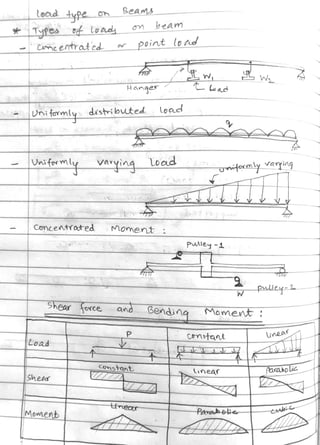 Load type on Beams
* Types of Loads on beam
- Concentrated or point load
W₁
W₂
Hanger
Load
- Uniformly distributed load
- Uniformly varying Load
uniformly varying
- Concentrated Moment :
Pulley-1
W
pulley-2
Shear force and Bending Moment :
Load
P
constant
linear
Shear
constant
linear
Parabolic
Moment
linear
Parabolic
cubic